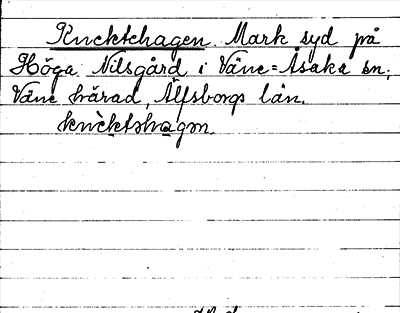 Knektehagen. Mark syd på
Höga Nilsgård i Väne=Åsaka sn.,
Väne härad, Älfsborgs län.
knèktshagen.